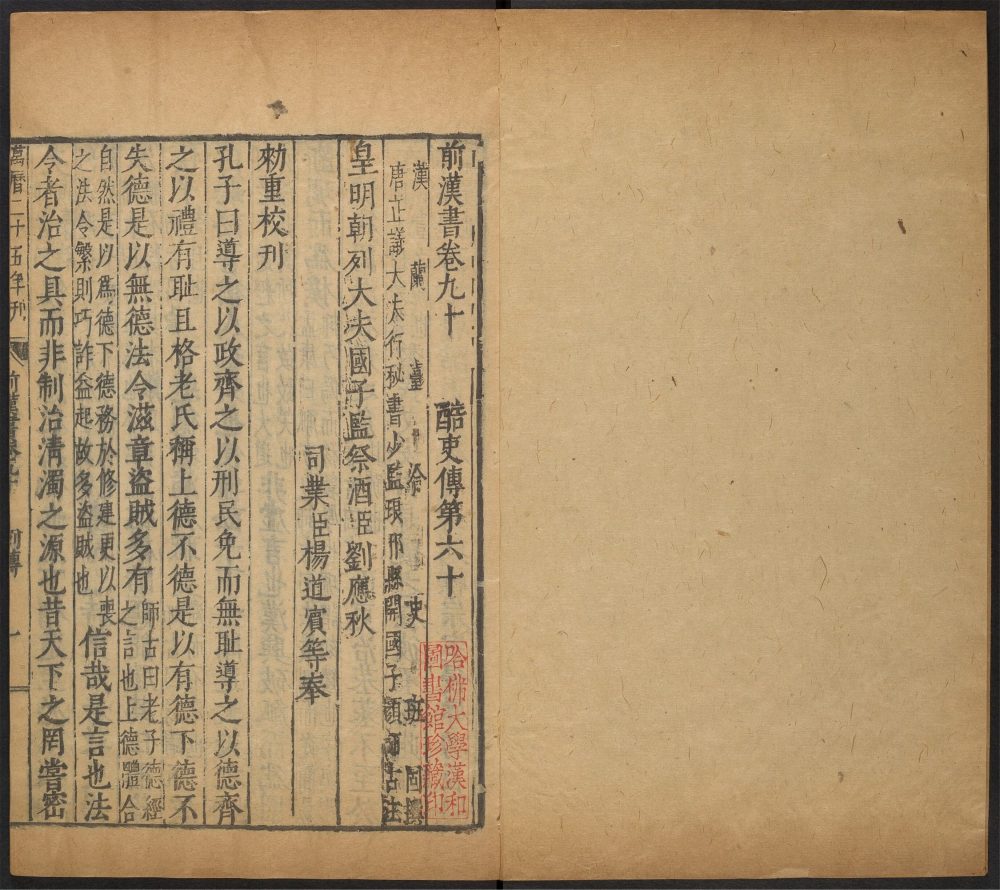 前漢書卷九十 酷吏傳第六十
漢 蘭臺令史 班固撰
唐正議大夫行秘書少監琅邪縣開國子顏師古注
皇明朝列大夫國子監祭酒臣劉應秋
司業臣楊道賓等奉
勑重校刊
孔子曰導之以政齊之以刑民免而無耻導之以德齊
之以禮有耻且格老氏稱上德不德是以有德下德不
失德是以無德法令滋章盜賊多有師古曰老子德經
之言也上德體合
自然是以爲德下德務於修建更以喪
之法令繁則巧詐益起故多盜賊也信哉是言也法
令者治之具而非制治清濁之源也昔天下之罔嘗密
萬曆二十五年刊 前漢書卷九十 列傳 一
哈佛大學漢和
圖書館珍藏印